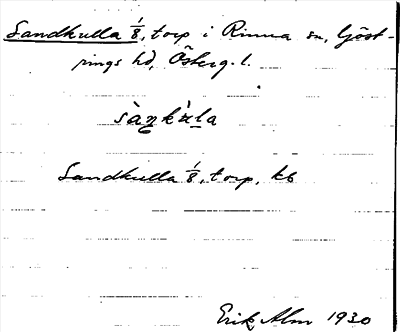 Sandkulla 1/8, torp i Rinna sn, Göst-
rings hd, Österg. l.
sàŋkùla
Sandkulla 1/8, torp, kb
Erik Alm 1930